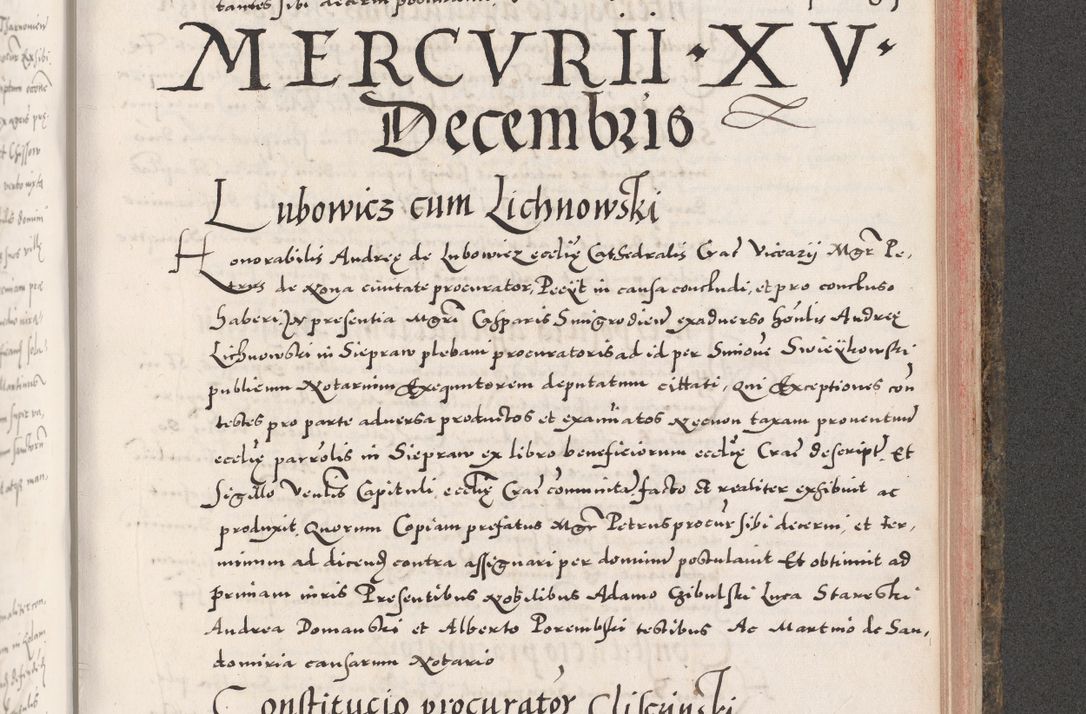 MERCVRII · X V ·
Decembris
Lubowicz cum Lichnowski
Honorabilis Andreę de Lubowicz eccliȩ Cathedralis Crac̃ Vicearij Mgr̃ Pe-
trus de Xona ciuitate procurator, Peeijt in causa concludi, et pro concluso
haberi, In presentia Mgri Casparis Smigrodien̄ exaduerso hon̄lis Andreę
Lichnowski in Siepraw plebani procuratoris ad id per Simone Swieykowski
publicum Notarium Exequutorem deputatum cittati, Qui Exceptiones con̄
testes pro parte aduersa productos et examinatos Necnon taxam prouentuum̄
eccliȩ parrolis in Siepraw ex libro beneficiorum eccliȩ Crac̃ descript̄. Et
sigillo Ven̄lis Capituli, eccliȩ Crac̃ com̄unita, facto et realiter exhibuit ac
produxit, Quorum Copiam prefatus Mgr̃ Petrus procur̄ sibi decerni, et ter-
minum ad dicend̄ contra assignari per dominum̄ postulauit Et obtinuit ad
primam iuris Presentibus Nobilibus Adamo Czibulski Luca Stareski
Andrea Domanski et Alberto Porembski testibus Ac Martino de San-
domiria causarum Notario
Constitucio procurator̄ Cliscinski